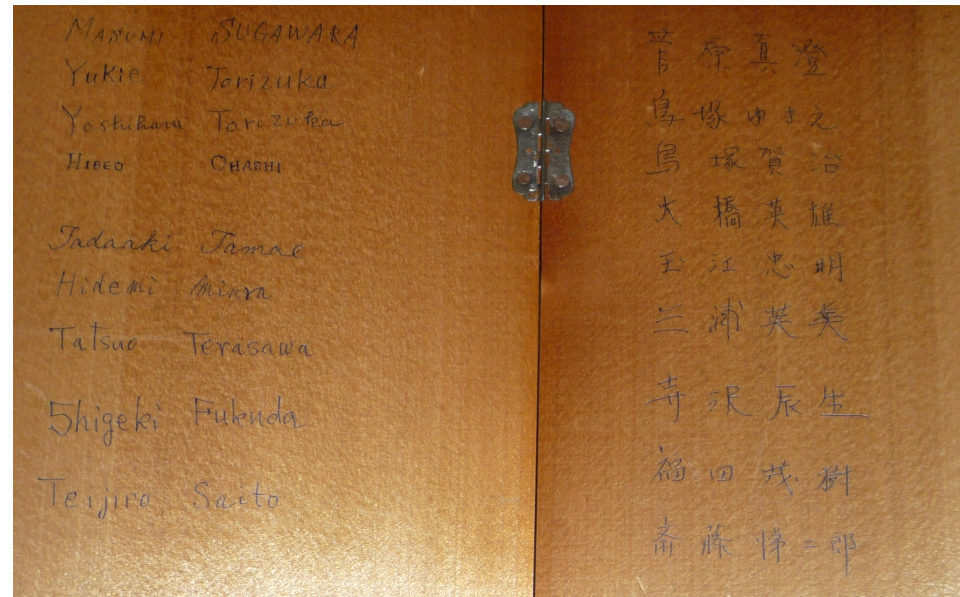 MASUMI SUGAWARA
Yukie Torizuka
Yoshiharu Torizuka
HIDEO OHASHI
Tadaaki Tamae
Hidemi Miura
Tatsuo Terasawa
Shigeki Fukuda
Teijiro Saito
菅原真澄
鳥塚ゆきえ
鳥塚賀治
大橋英雄
玉江忠明
三浦英美
寺沢辰生
福田茂樹
斎藤悌二郎